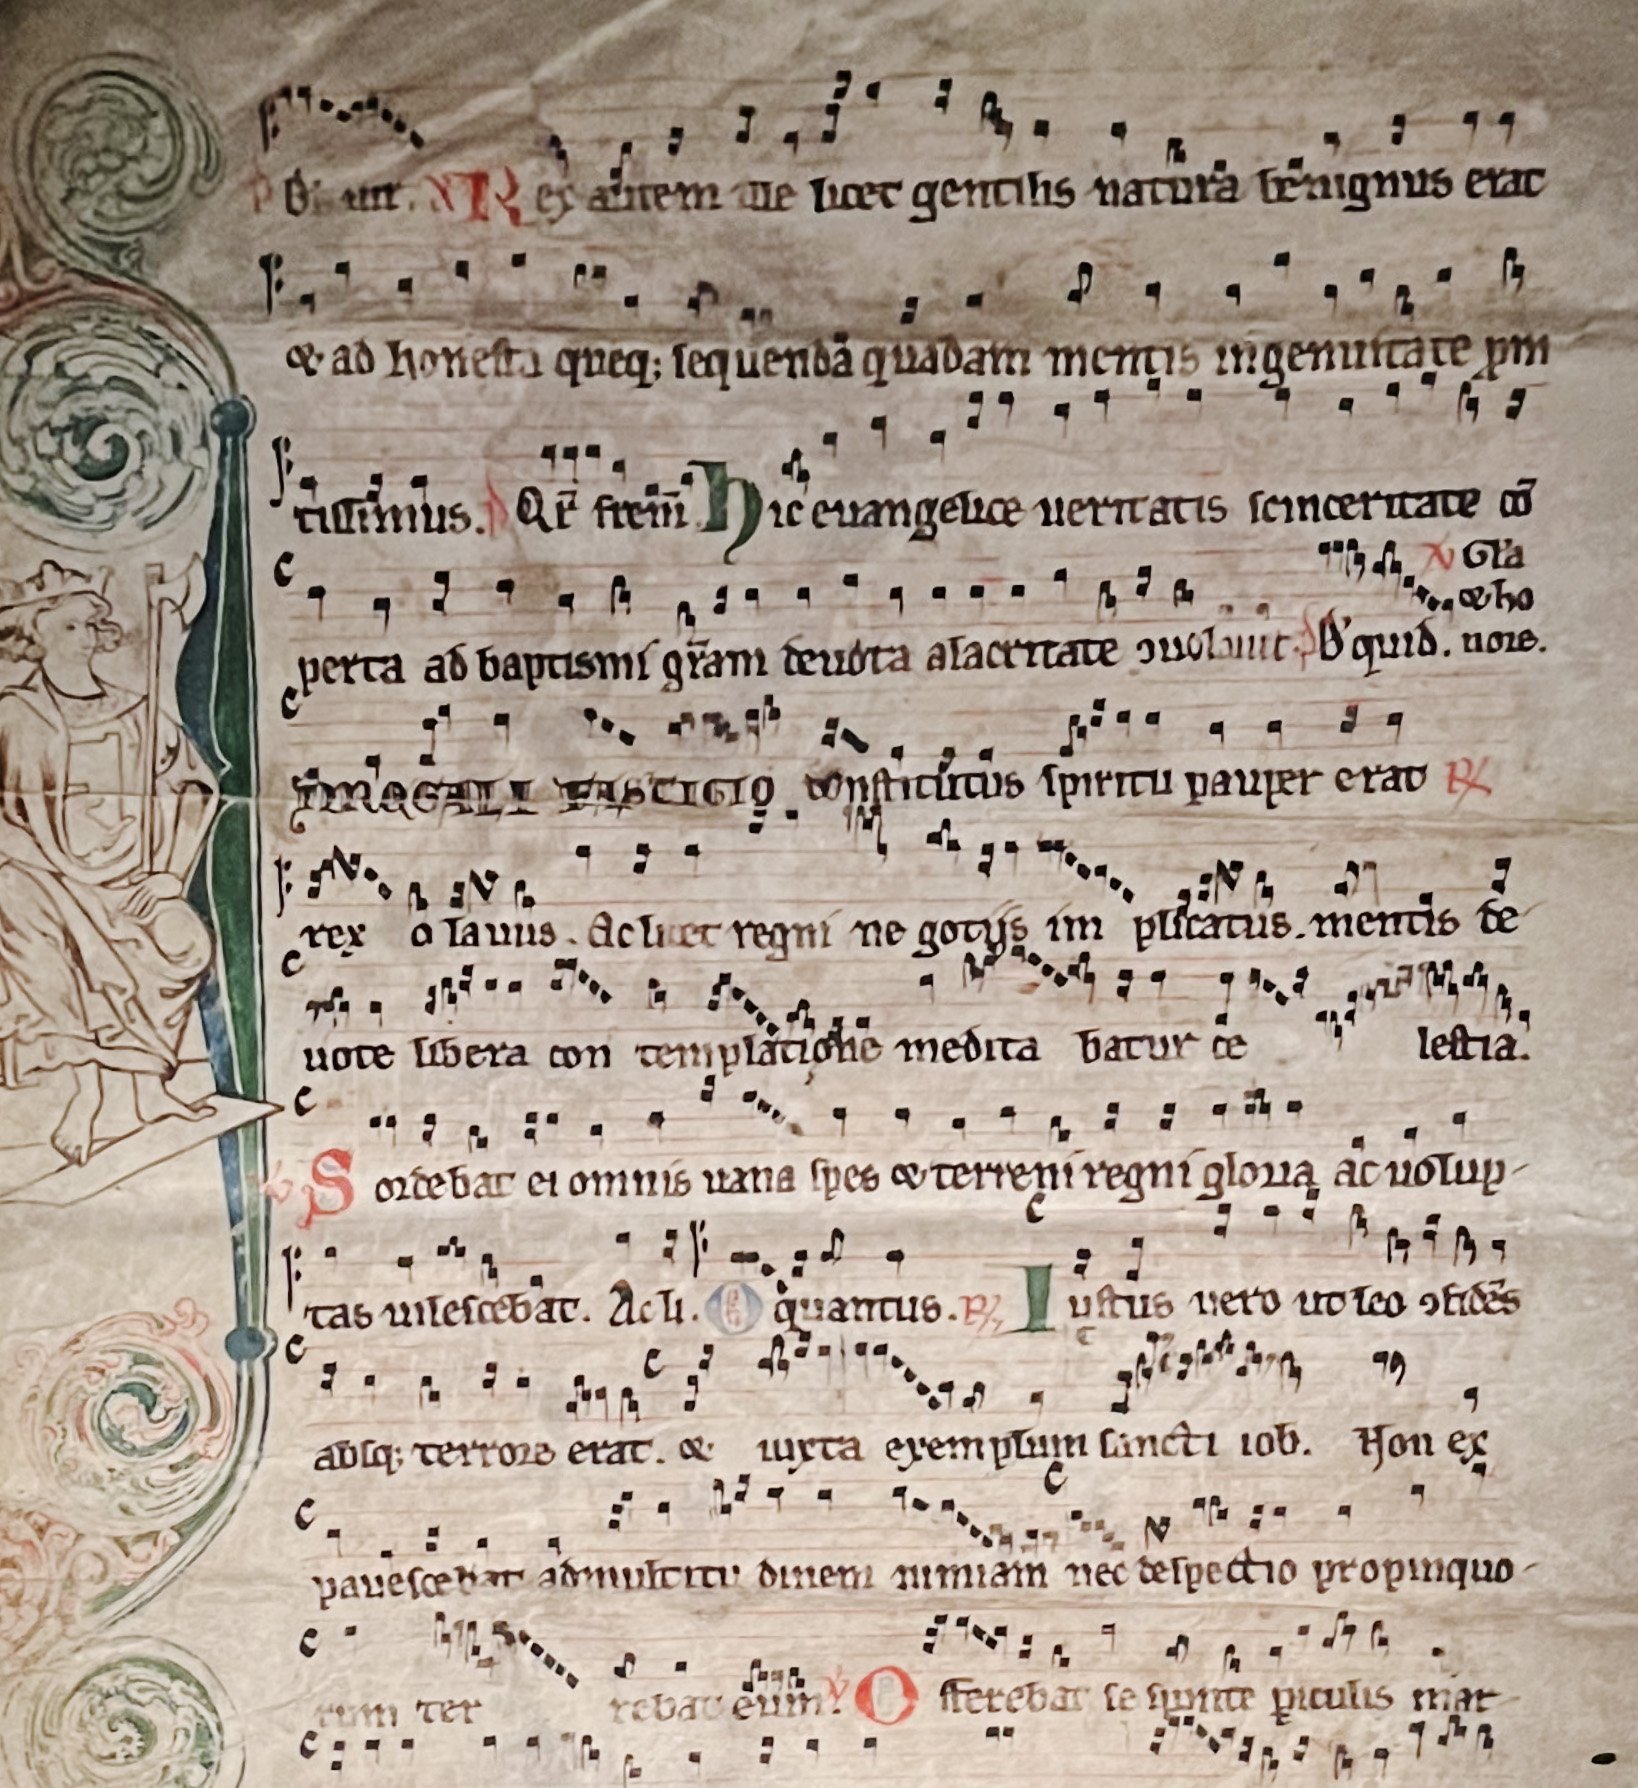 Rex autem ille licet gentilis naturā benignus erat
& ad honesta queq; sequendā quadam mentis ingenuitate ꝓm
tissimus. Hic euangelice ueritatis scinceritate cō
Gl'a
& ho
perta ad baptismi gr̄am deuota alacritate ɔuolauit. P' quid. nore.
IN REGALI FASTIGIO constitutus spiritu pauper erat ℟
rex olauus. Ac licet regni ne gotijs im plicatus. mentis de-
uote libera con templatione medita batur ce lestia.
℣ Sordebat ei omnis uana spes & terreni regni gloria ac uolup-
tas uilescebat. Ac li. quantus. ℟ Iustus uero ut leo ɔfidēs
absq; terrore erat. & iuxta exemplum sancti iob. Non ex
pauescebat ad multitu dinem nimiam nec despectio propinquo-
rum ter rebat eum. ℣ Offerebat se sponte ꝑiculis mar-